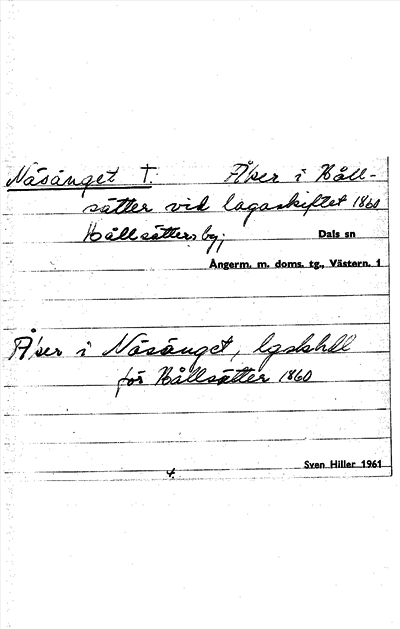 Näsänget T. Åker i Håll-
sätter vid lagaskiftet 1860
Hållsätters by; Dals sn
Ångerm. m. doms. tg., Västern. 1
Åker i Näsänget, lgskhdl
för Hållsätter 1860
Sven Hiller 1961
4.